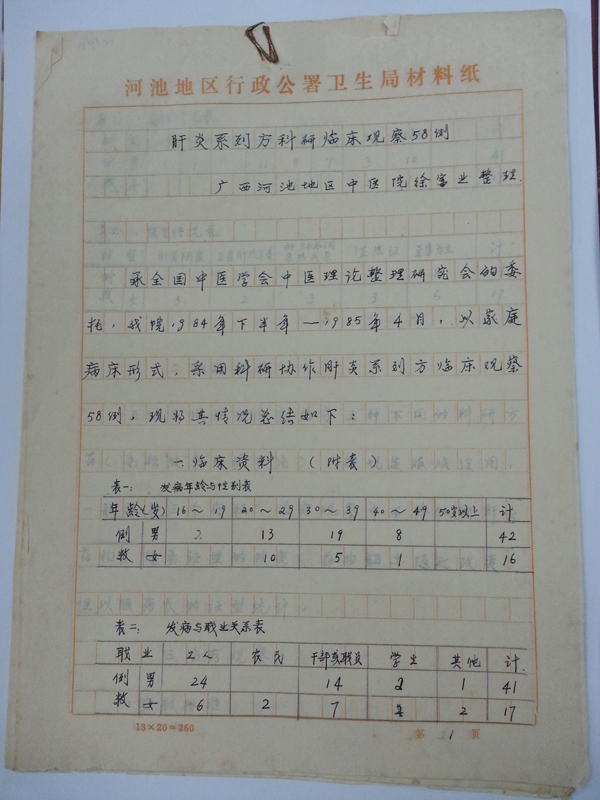 河池地区行政公署卫生局材料纸
肝炎系列方科研临床观察58例
广西河池地区中医院徐富业整理.
承全国中医学会中医理论整理研究会的委
托,我院1984年下半年—1985年4月,以家庭
病床形式,采用科研协作肝炎系列方临床观察
58例,现将其情况总结如下:
一、临床资料 (附表)
表一: 发病年龄与性别表
年龄(岁) 16～19 20～29 30～39 40～49 50岁以上 计
例 男 2 13 19 8 42
数 女 10 5 1 16
表二: 发病与职业关系表
职业 工人 农民 干部或职员 学生 其他 计
例 男 24 14 2 1 41
数 女 6 2 7 2 17
13×20=260
第 1 页